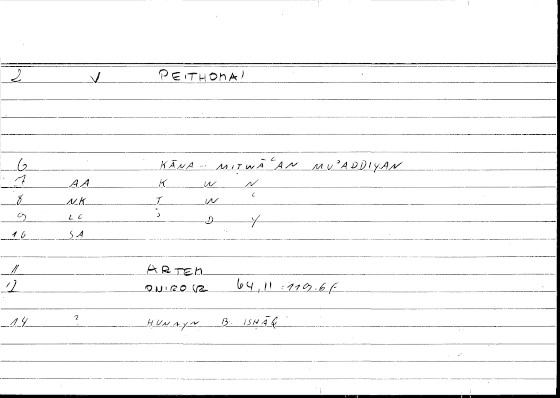 2 V PEITHOMAI
6 KĀNA -- MIṬWĀʿAN MUʾADDIYAN
7 AA K W N
8 NK Ṭ W ʿ
9 LC ʾ D Y
10 SA
11 ARTEM
12 ONIROCR 64,11 = 119.6f
14 ? HUNAYN B. ISHĀQ